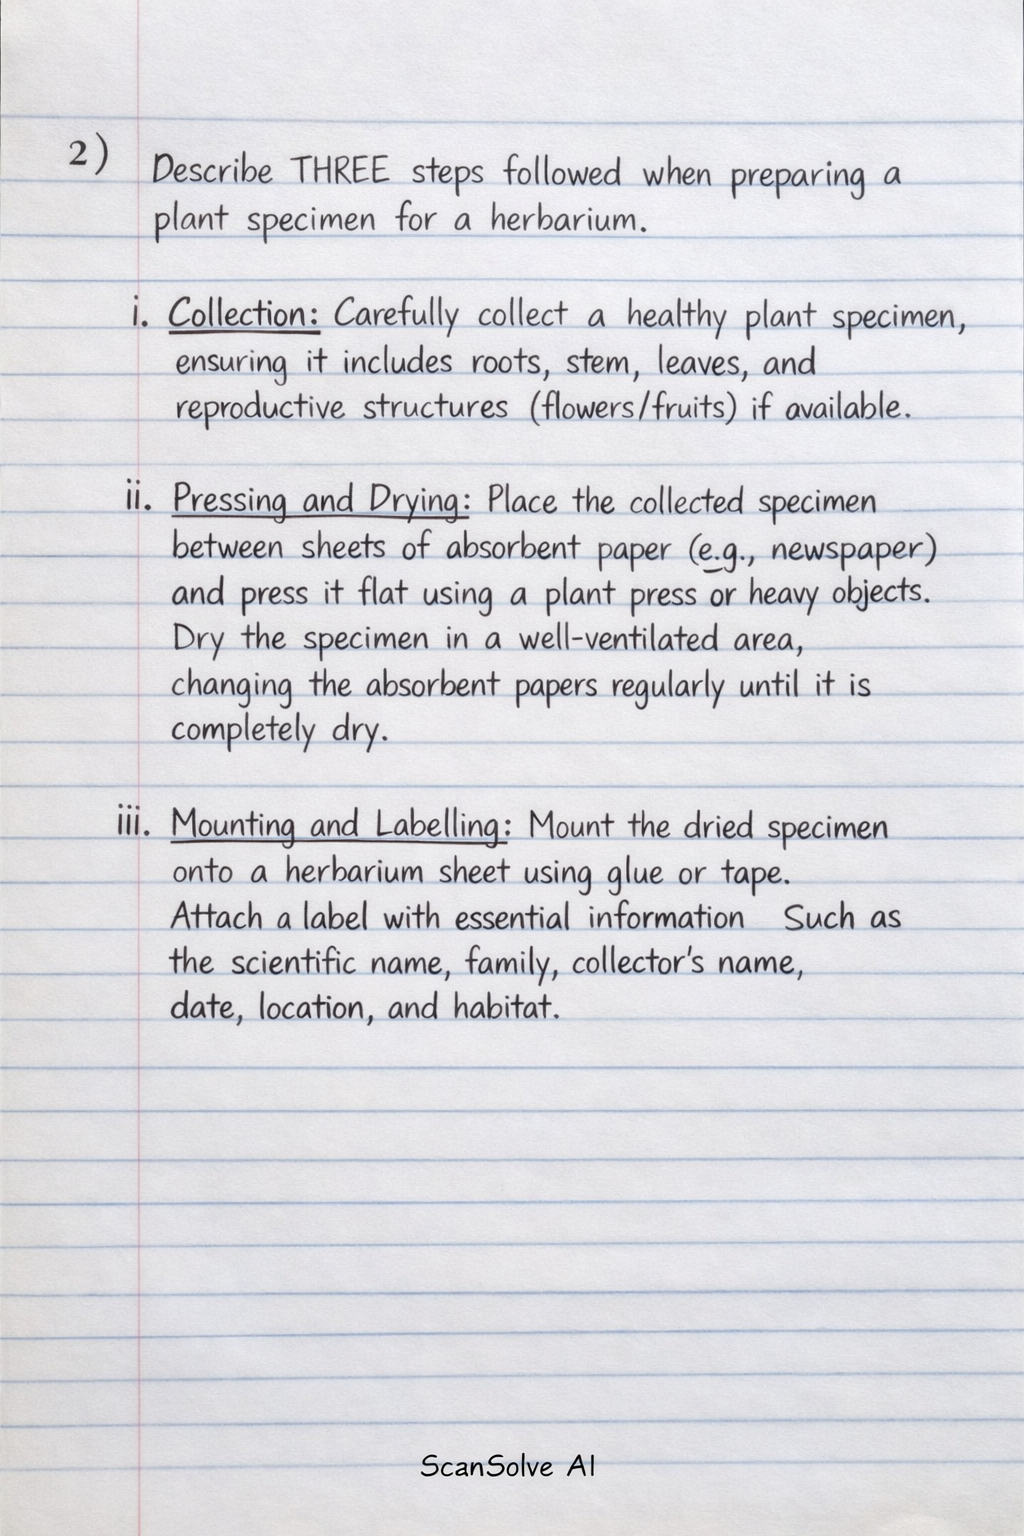 2) Describe THREE steps followed when preparing a
plant specimen for a herbarium.
i. Collection: Carefully collect a healthy plant specimen,
ensuring it includes roots, stem, leaves, and
reproductive structures (flowers/fruits) if available.
ii. Pressing and Drying: Place the collected specimen
between sheets of absorbent paper (e.g., newspaper)
and press it flat using a plant press or heavy objects.
Dry the specimen in a well-ventilated area,
changing the absorbent papers regularly until it is
completely dry.
iii. Mounting and Labelling: Mount the dried specimen
onto a herbarium sheet using glue or tape.
Attach a label with essential information Such as
the scientific name, family, collector's name,
date, location, and habitat.
ScanSolve AI